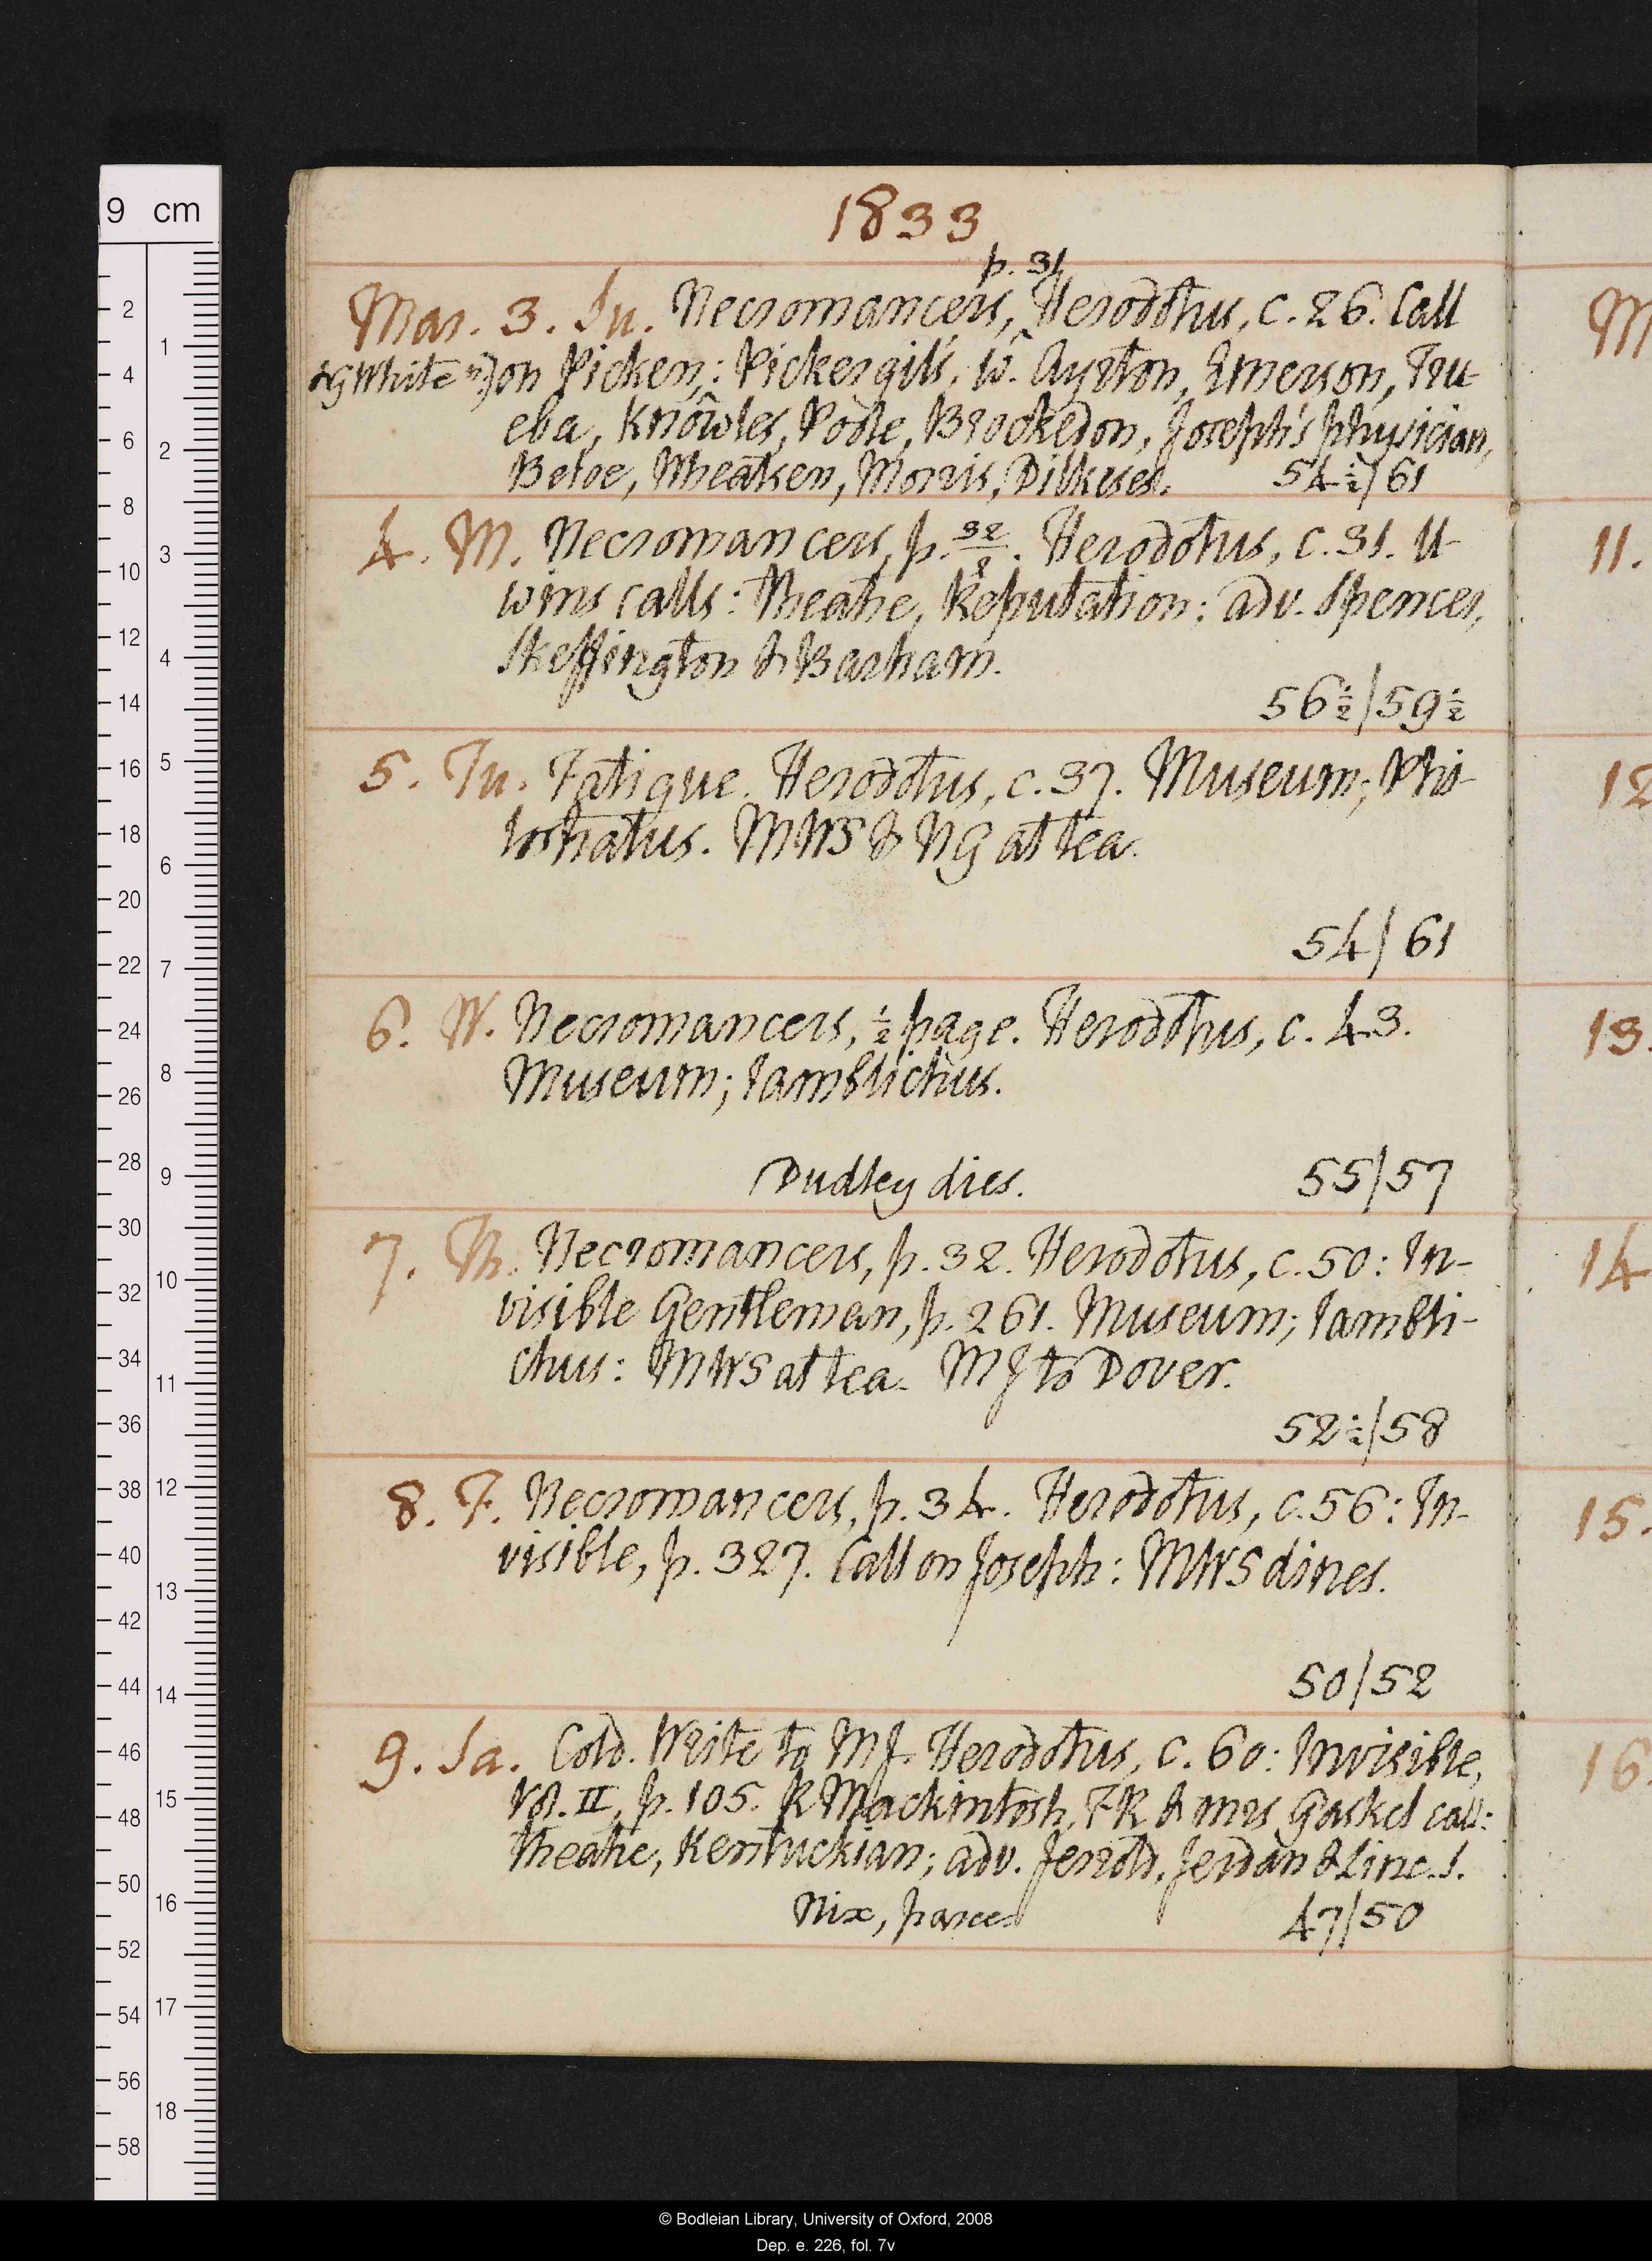 1833
p. 31
Mar. 3. Su. Necromancers, ^ Herodotus, c. 26. Call
on Picken: Pickersgil's, w. Ayrton, Emerson, Tru-
eba, Knowles, Poole, Brockedon, Joseph's physician,
Beloe, Wheatsen, Morris, Dilkeses. 54½/61
4. M. Necromancers, p. 32/2. Herodotus, c. 31. U-
wins calls: Theatre, Reputation; adv. Spencer,
Skeffington & Barham.
56½/59½
5. Tu. Fatigue. Herodotus, c. 37. Museum; Phi-
lostratus. MWS & NG at tea.
54/61
6. W. Necromancers, ½ page. Herodotus, c. 43.
Museum; Iamblichus.
Dudley dies. 55/57
7. Th. Necromancers, p. 32. Herodotus, c. 50: In-
visible Gentleman, p. 261. Museum; Iambli-
chus: MWS at tea. MJ to Dover.
52½/58
8. F. Necromancers, p. 34. Herodotus, c. 56: In-
visible, p. 327. Call on Joseph: MWS dines.
50/52
9. Sa. Cold. Write to MJ. Herodotus, c. 60: Invisible,
Vol. II, p. 105. R Mackintosh, FR & mrs Gaskel call:
theatre, Kentuckian; adv. Jerrold, Jerdan & Linc. I.
Nix, parce 47/50
M
11.
12
13.
14
15.
16.
9 cm
2
4
6
8
10
12
14
16
18
20
22
24
26
28
30
32
34
36
38
40
42
44
46
48
50
52
54
56
58
1
2
3
4
5
6
7
8
9
10
11
12
13
14
15
16
17
18
© Bodleian Library, University of Oxford, 2008
Dep. e. 226, fol. 7v